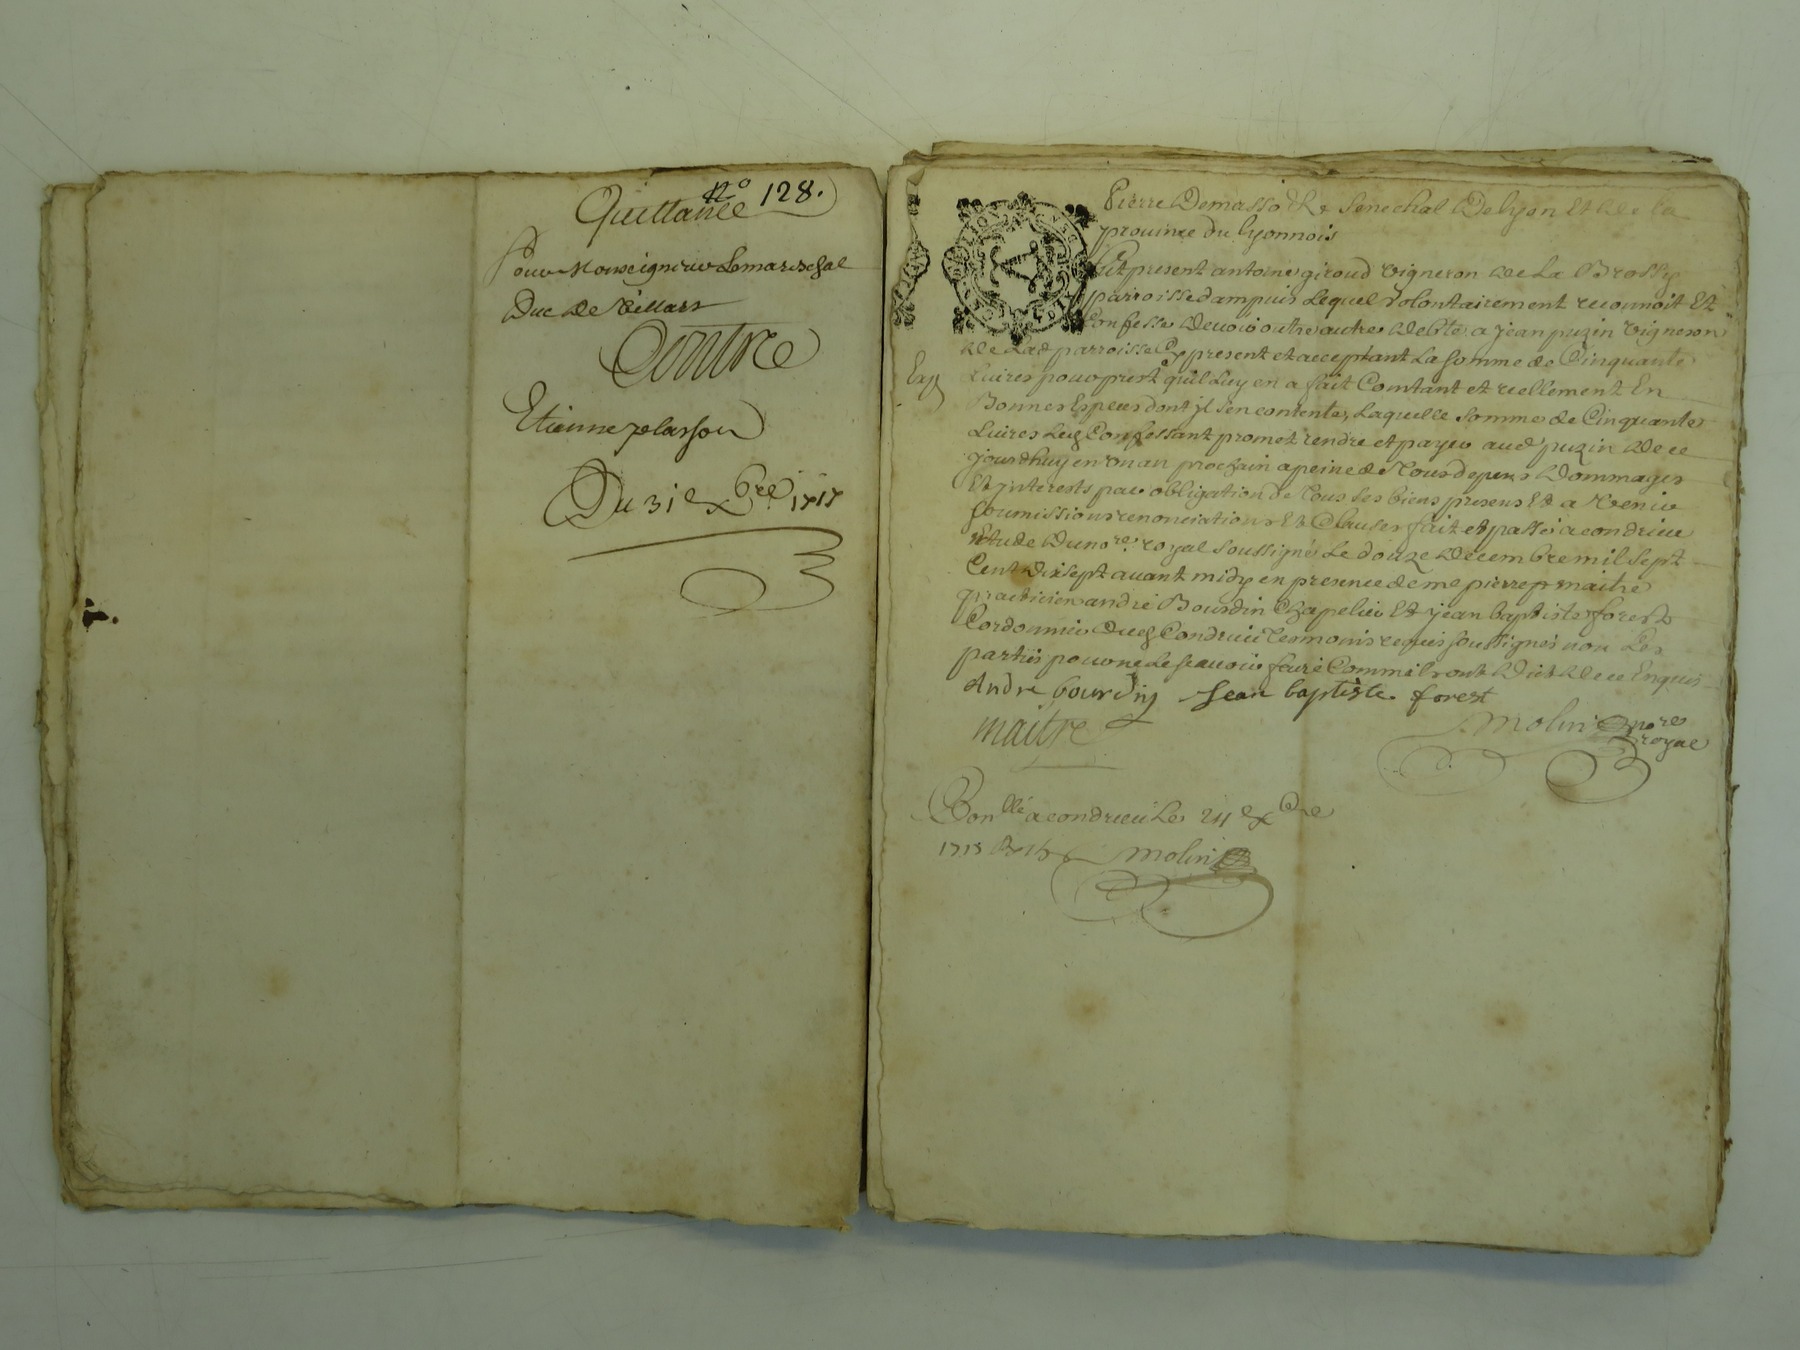 N° 128.
Quittance
Pour Monseigneur Lemareschal
Duc de Villars
Contre
Etienne plasson
Du 31e xbre 1717
Pierre Demasso Senechal De lyon Et de la
province du lyonnois
fut present antoine giroud vigneron de La Brossy
parroisse dampuis Lequel volontairement reconnoit Et
Confesse devoir outre autre debte a jean puzin vigneron
de Lad parroisse Cy present et acceptant La somme de Cinquante
Livres pour prest quil Luy en a fait Comtant et reellement En
Bonnes Especes dont jl sen contente, Laquelle somme de Cinquante
Livres Led Confessant promet rendre et payer aud puzin de ce
jourdhuy en vn an prochain a peine de Tous depens Dommages
Et jnterests par obligation de Tous ses biens presens Et a Venir
soumissions renonciations Et Clauses fait et passé a condrieu
Etude du nore. royal soussigné Le douze decembre mil sept
Cent dix sept avant midy en presence de me pierre maitre
practicien andré Bourdin Chapelier Et jean baptiste forest
Cordonnier dud Condrieu Tesmoins requis soussignés non Les
parties pour ne Le scavoir faire Comme ils ont dit de ce Enquis
Exp
Andre bourdin Jean baptiste forest
maitre
Molin nore
royal
Conllé a condrieu Le 24e xbre
1717 Molin